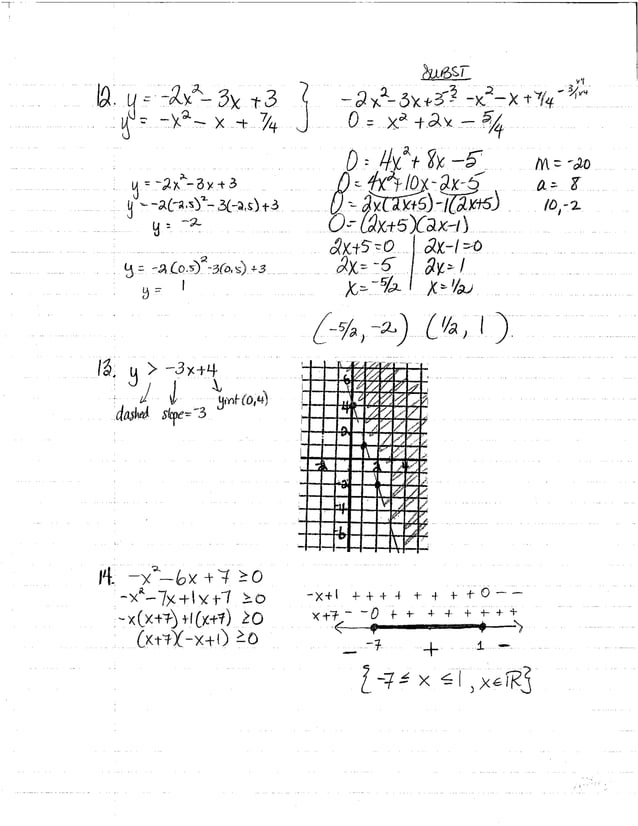 SUBST
12. y = -2x² - 3x + 3 } -2x² - 3x + 3 = -x² - x + 7/4
y = -x² - x + 7/4 0 = x² + 2x - 5/4
0 = 4x² + 8x - 5 m = -20
y = -2x² - 3x + 3 0 = 4x² + 10x - 2x - 5 a = 8
y = -2(-2.5)² - 3(-2.5) + 3 0 = 2x(2x+5) - 1(2x+5) 10, -2
y = -2 0 = (2x+5)(2x-1)
2x+5=0 | 2x-1=0
y = -2(0.5)² - 3(0.5) + 3 2x = -5 | 2x = 1
y = 1 x = -5/2 | x = 1/2
(-5/2, -2) (1/2, 1).
13. y > -3x+4
dashed slope = -3 yint (0,4)
6
4
2
-2 2 4
-2
-4
-6
14. -x² - 6x + 7 ≥ 0
-x² - 7x + 1x + 7 ≥ 0 -x+1 + + + + + + + + 0 - -
-x(x+7) + 1(x+7) ≥ 0 x+7 - - 0 + + + + + + + +
(x+7)(-x+1) ≥ 0
-7 1
- + -
{ -7 ≤ x ≤ 1, x∈ℝ }